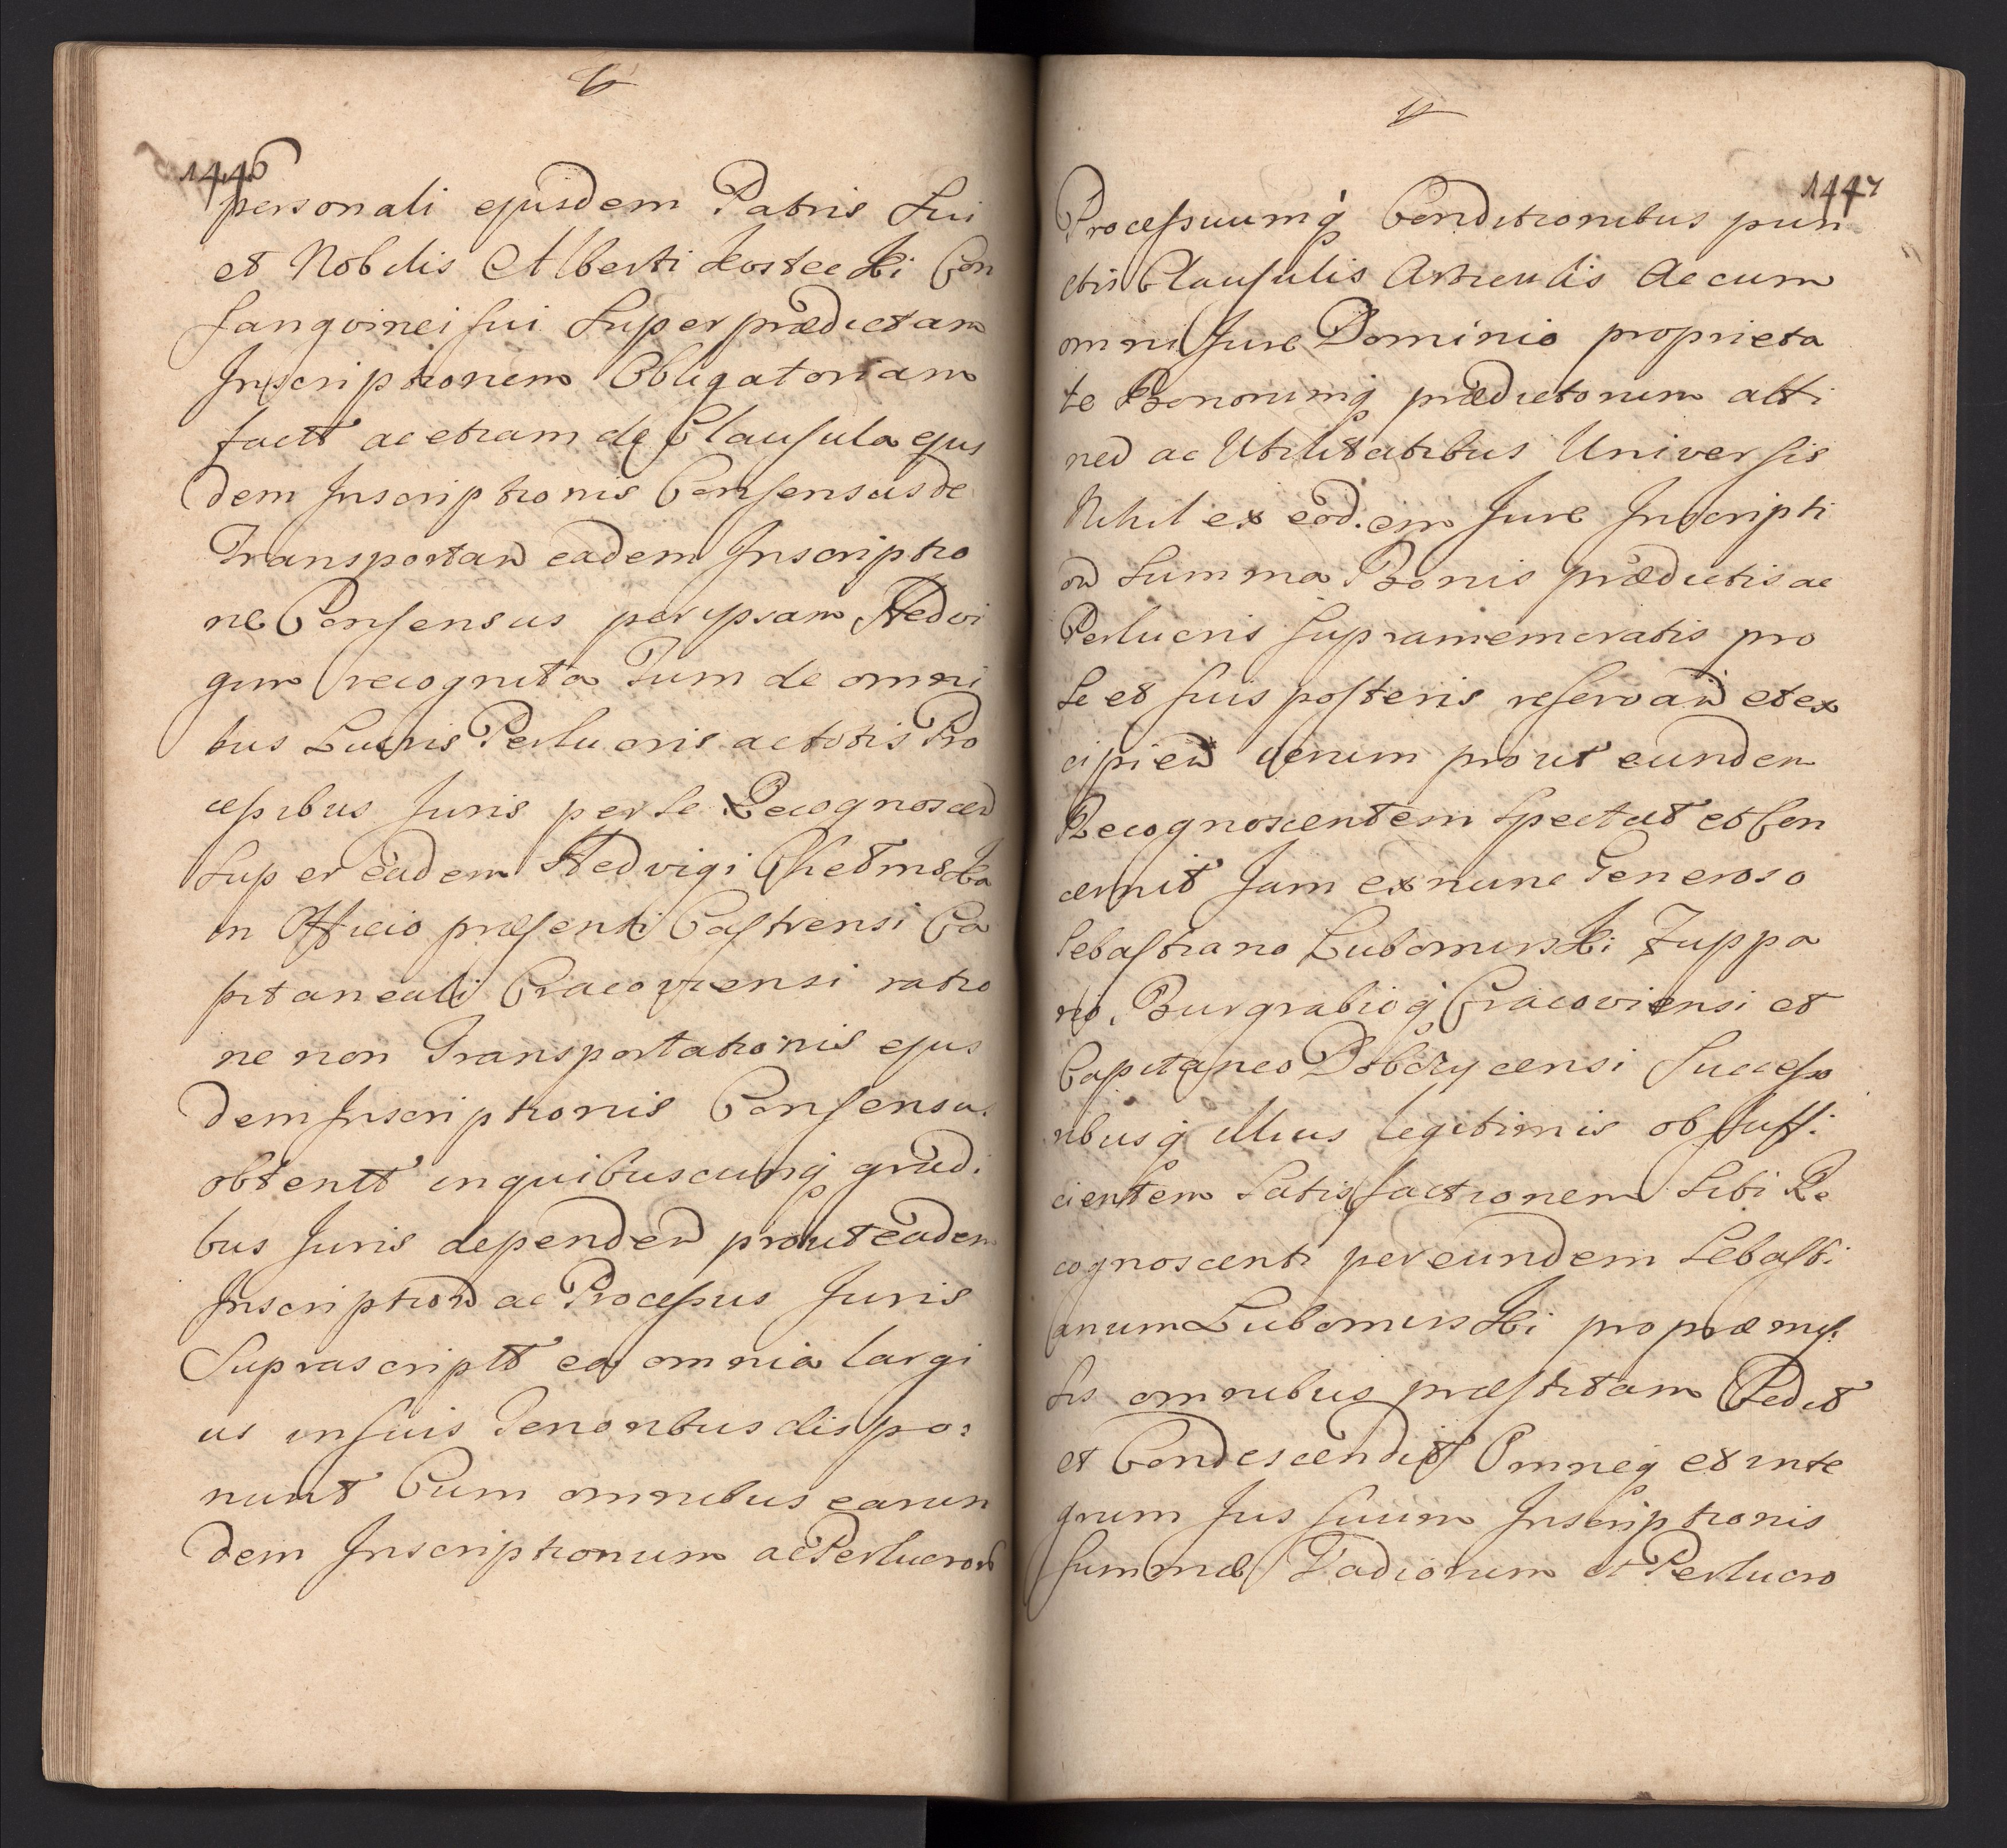 1446
personali ejusdem Patris Sui
et Nobilis Alberti Kostecki Con
sangvinei sui Super prædictam
Inscriptionem Obligatoriam
factt ac etiam de Clausula ejus
dem Inscriptionis Consensus de
Transportand eadem Inscriptio
ne Consensus per ipsam Hedvi
gim recognita Tum de omni
bus Lucris Perlucris ac totis Pro
cessibus Juris per se Recognoscend
Super eadem Hedvigi Chetmska
in Officio præsenti Castrensi Ca
pitaneali Cracoviensi ratio
ne non Transportationis ejus
dem Inscriptionis Consensus
obtentt in quibuscunq gradi
bus Juris dependen prout eadem
Inscription ac Processus Juris
Suprascriptt ea omnia largi
us in suis Tenoribus dispo:
nunt Cum omnibus earun
dem Inscriptionum ac Perlucror
1447
Processuumq Conditionibus pun
ctis Clausulis Articulis ac cum
omni Jure Dominio proprieta
te Bonorumq prædictorum atti
nen ac Utilitatibus Universis
Nihil ex eodem Jure Inscripti
on Summa Bonis prædictis ac
Perlucris supramemoratis pro
se et suis posteris reservand et ex
cipiend verum prout eundem
Recognoscentem Spectat et Con
cernit Jam ex nunc Generoso
Sebastiano Lubomirski Zuppa
rio, Burgrabioq Cracoviensi et
Capitaneo Dobczycensi Successo
ribusq illius legitimis ob suffi:
cientem Satisfactionem Sibi Re
cognoscenti per eundem Sebasti:
anum Lubomirski pro præmis:
sis omnibus præstitam Cedit
et Condescendit Omneq et inte
grum Jus suum Inscriptionis
summæ Vadiorum et Perlucro